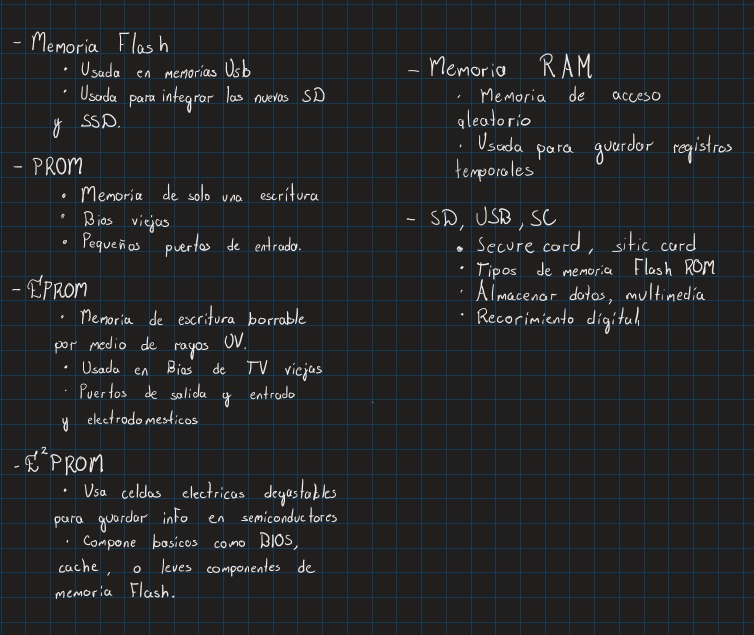 - Memoria Flash
· Usada en memorias Usb
· Usada para integrar las nuevas SD
y SSD.
- PROM
· Memoria de solo una escritura
· Bios viejas
· Pequeñas puertas de entrada.
- EPROM
· Memoria de escritura borrable
por medio de rayos UV.
· Usada en Bios de TV viejas
· Puertos de salida y entrada
y electrodomesticos
- E²PROM
· Usa celdas electricas degastables
para guardar info en semiconductores
· Compone basicos como BIOS,
cache, o leves componentes de
memoria Flash.
- Memoria RAM
· Memoria de acceso
aleatorio
· Usada para guardar registros
temporales
- SD, USB, SC
· Secure card, sitic card
· Tipos de memoria Flash ROM
· Almacenar datos, multimedia
· Recorimiento digital